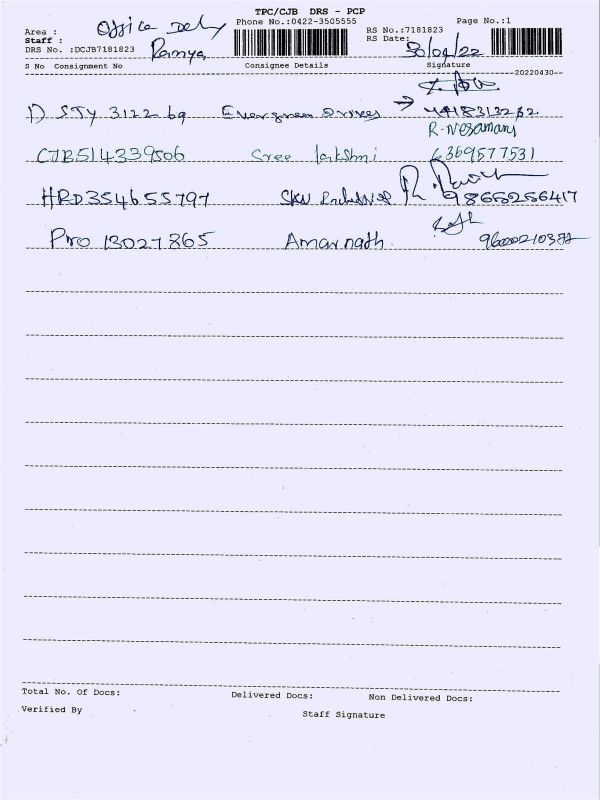 TPC/CJB DRS - PCP
Phone No.:0422-3505555
Page No.:1
Area : Office Dely
Staff : Ramya
RS No.:7181823
RS Date: 30/04/22
DRS No. :DCJB7181823
S No Consignment No Consignee Details Signature
20220430
1) STY 312269 Evergreen Drives →
R. Nesamani
CJB514339506 Sree lakshmi 6369577531
HRD354655797 9865256417
Pno 13027865 Amarnath
Total No. Of Docs: Delivered Docs: Non Delivered Docs:
Verified By Staff Signature